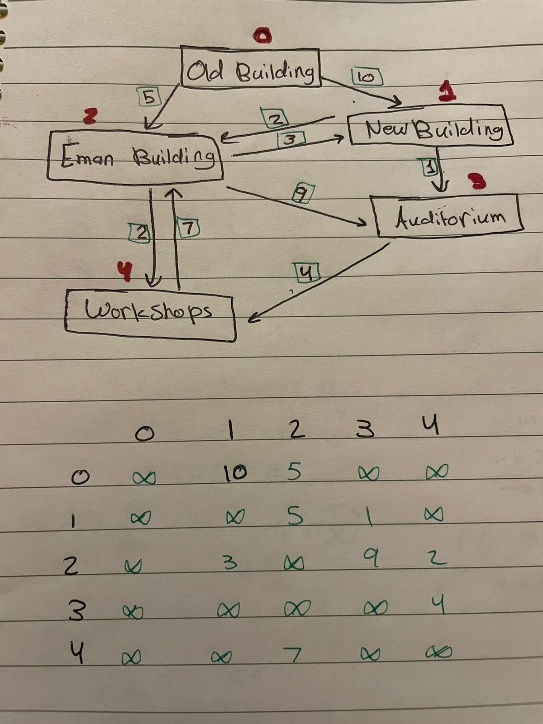 0
Old Building
5
10
1
2
2
New Building
3
Eman Building
1
3
9
Auditorium
2
7
4
4
Workshops
0 1 2 3 4
0 ∞ 10 5 ∞ ∞
1 ∞ ∞ 5 1 ∞
2 ∞ 3 ∞ 9 2
3 ∞ ∞ ∞ ∞ 4
4 ∞ ∞ 7 ∞ ∞